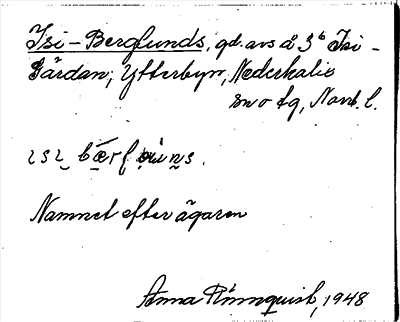 Isi-Berglunds, gd. avs å 3⁶ Isi-
Gårdan; Ytterbyn, Nederkalix
sn o tg, Norrb. l.
Namnet efter ägaren
Anna Rönnquist, 1948